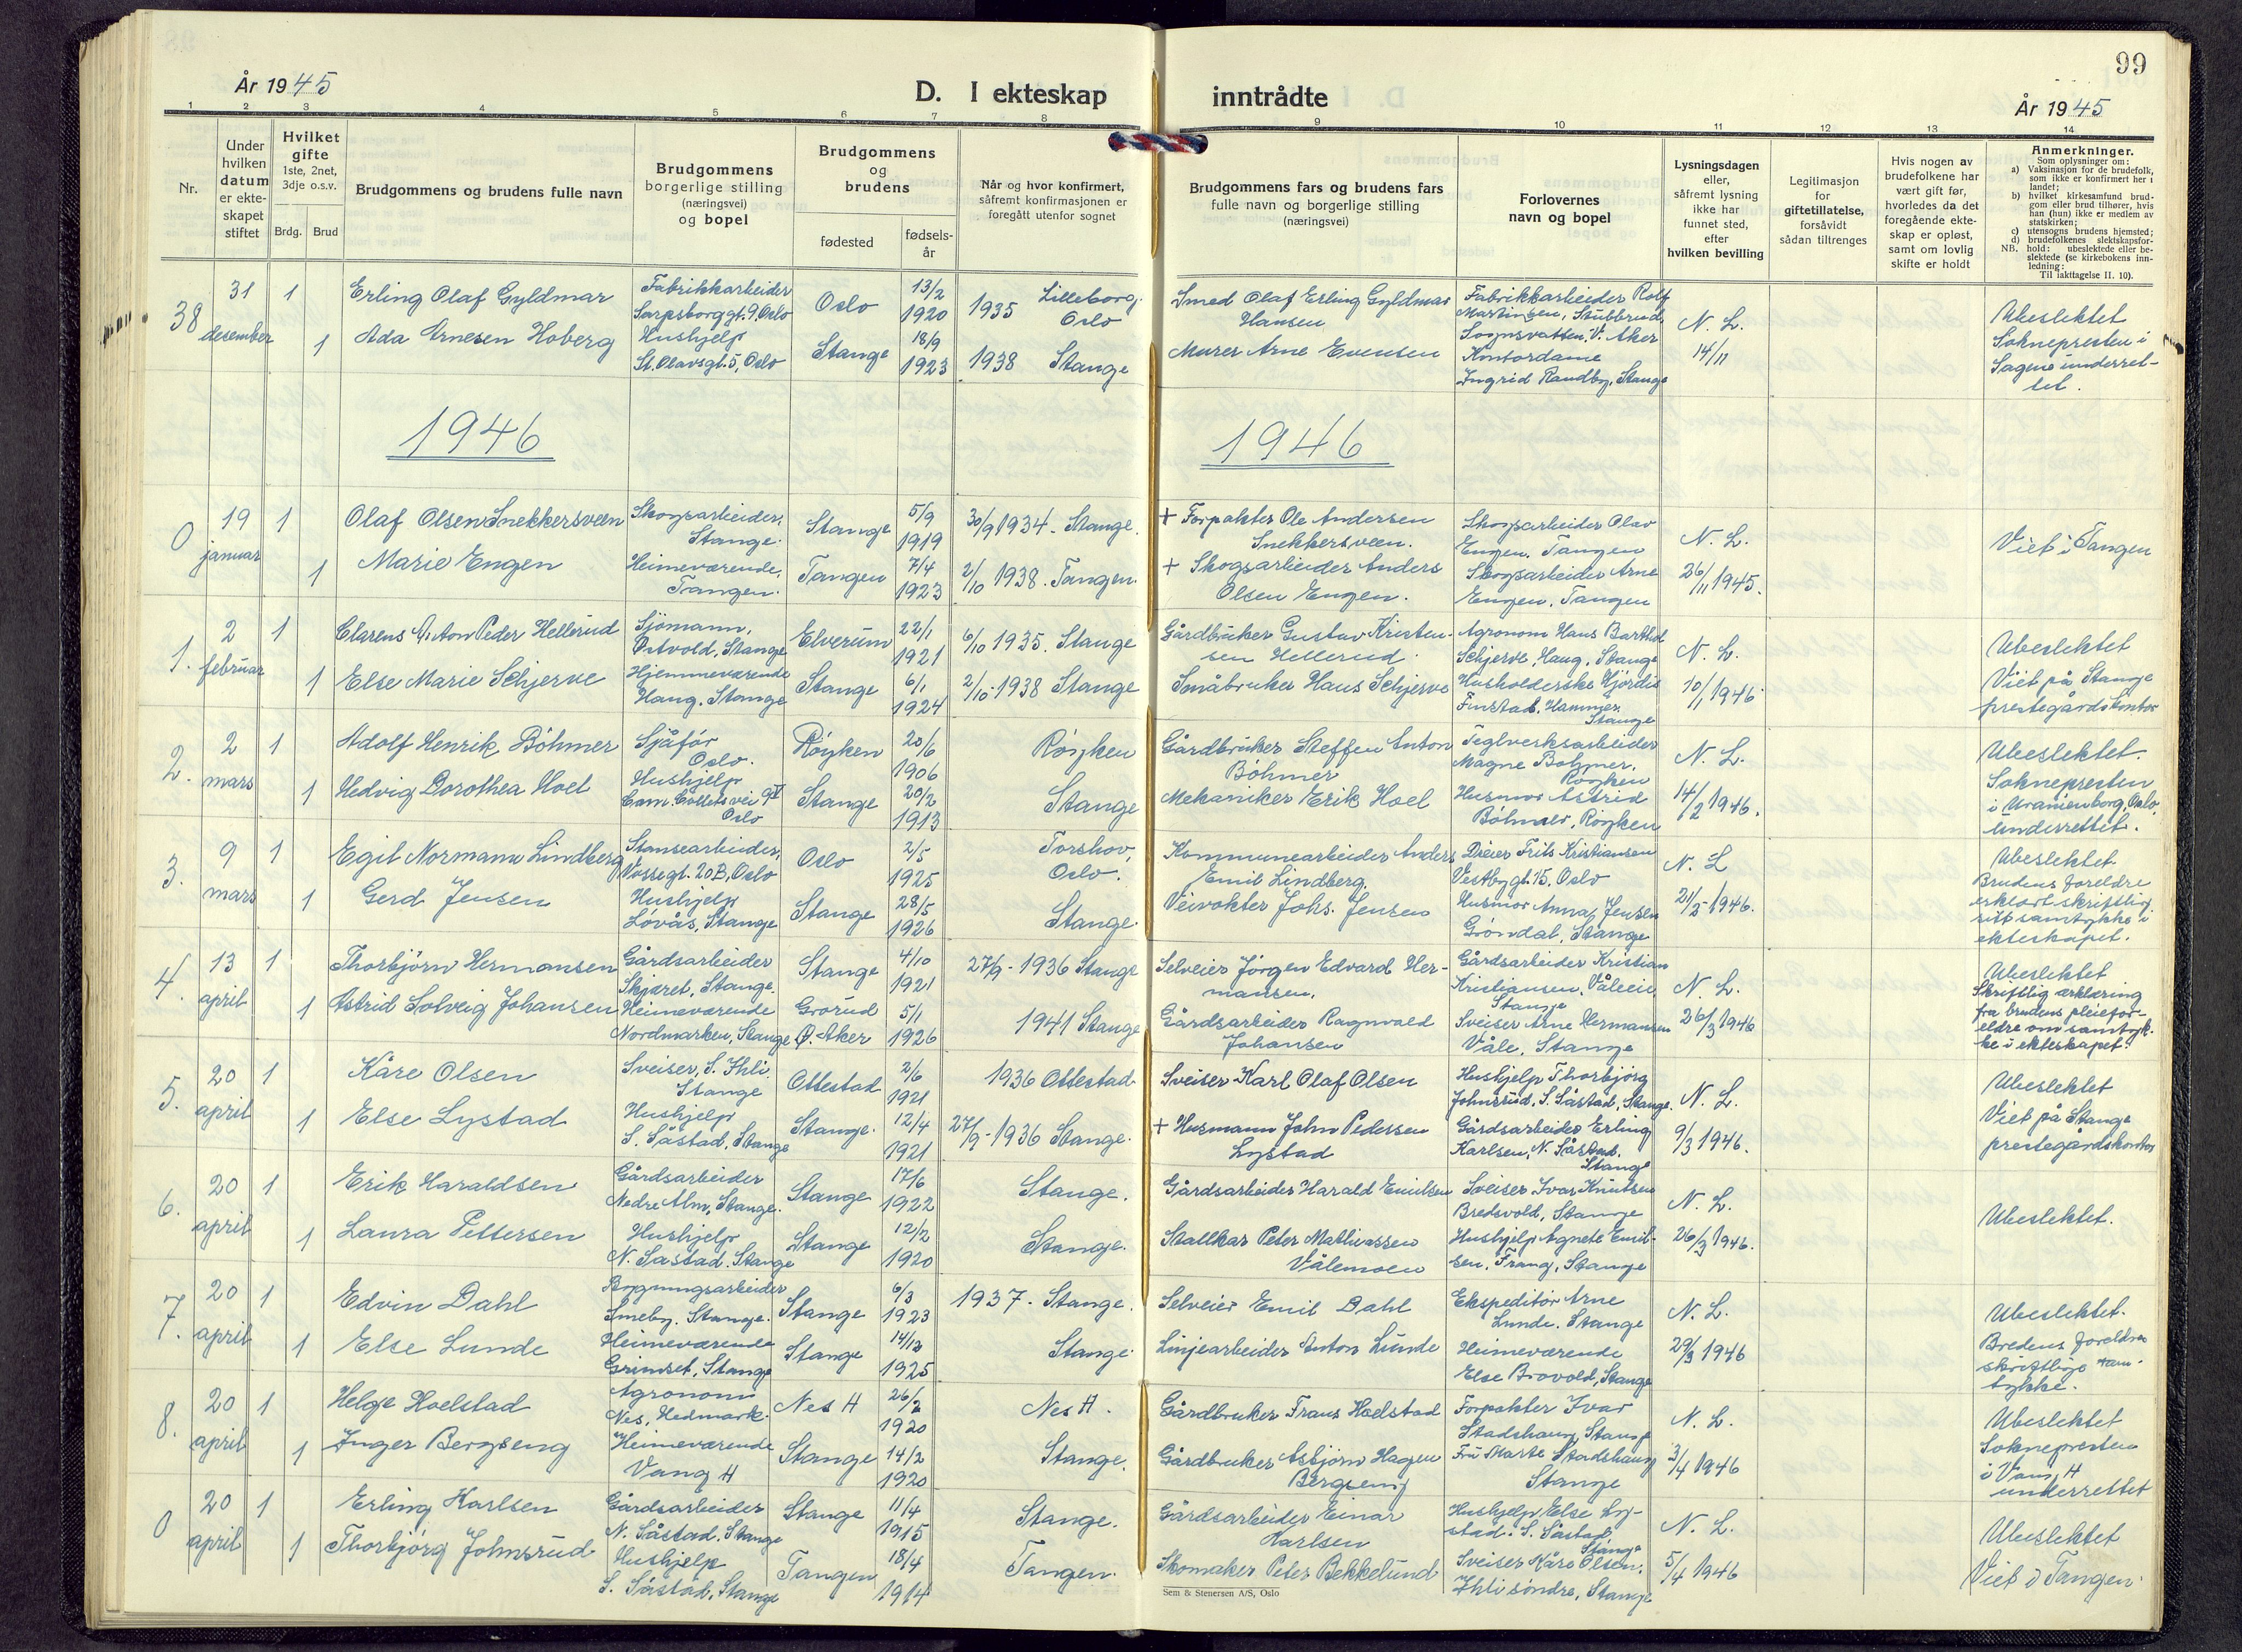 99
År 1945
D. I ekteskap inntrådte
År 1945
1 2 3 4 5 6 7 8 9 10 11 12 13 14
Nr.
Under
hvilken
datum
er ekte-
skapet
stiftet
Hvilket
gifte
1ste, 2net,
3dje o.s.v.
Brdg. Brud
Brudgommens og brudens fulle navn
Brudgommens
borgerlige stilling
(næringsvei)
og bopel
Brudgommens
og
brudens
fødested
fødsels-
år
Når og hvor konfirmert,
såfremt konfirmasjonen er
foregått utenfor sognet
Brudgommens fars og brudens fars
fulle navn og borgerlige stilling
(næringsvei)
Forlovernes
navn og bopel
Lysningsdagen
eller,
såfremt lysning
ikke har
funnet sted,
efter
hvilken bevilling
Legitimasjon
for
giftetillatelse,
forsåvidt
sådan tiltrenges
Hvis nogen av
brudefolkene har
vært gift før,
hvorledes da det
foregående ekte-
skap er opløst,
samt om lovlig
skifte er holdt
Anmerkninger.
Som oplysninger om:
a) Vaksinasjon for de brudefolk,
som ikke er konfirmert her i
landet;
b) hvilket kirkesamfund brud-
gom eller brud tilhører, hvis
han (hun) ikke er medlem av
statskirken;
c) utensogns brudens hjemsted;
d) brudefolkenes slektskapsfor-
NB. hold: ubeslektede eller be-
slektede (se kirkebokens inn-
ledning:
Til iakttagelse II. 10).
38
31
desember
1
1
Erling Olaf Gyldmar
Ada Arnesen Hoberg
Fabrikkarbeider
Sarpsborggt. 9, Oslo
Hushjelp
St. Olavsgt. 5, Oslo
Oslo
Stange
13/2
1920
18/9
1923
1935 Lilleborg,
Oslo
1938 Stange
Smed Olaf Erling Gyldmar
Hansen
Murer Arne Evensen
Fabrikkarbeider Rolf
Martinsen, Stubberud
Sognsvatten, V. Aker
Kontordame
Ingrid Randby, Stange
N. L.
14/11
Ubeslektet
Soknepresten i
Sagene underret-
tet.
1946
1946
0
19
januar
1
1
Olaf Olsen Snekkersveen
Marie Engen
Skogsarbeider,
Stange.
Heimeværende,
Tangen.
Stange
Tangen
5/9
1919
7/4
1923
30/9 1934 - Stange.
2/10 1938. Tangen.
+ Forpakter Ole Andersen
Snekkersveen.
+ Skogsarbeider Anders
Olsen Engen.
Skogsarbeider Olav
Engen, Tangen
Skogsarbeider Arne
Engen, Tangen
N. L.
26/11 1945.
Viet i Tangen
1.
2
februar
1
1
Clarens Anton Peder Hellerud
Else Marie Schjerve
Sjömann,
Østvold, Stange
Hjemmeværende
Haug, Stange
Elverum
Stange
22/1
1921
6/1
1924
6/10 1935. Stange
2/10 - 1938 Stange
Gårdbruker Gustav Kristen-
sen Hellerud.
Småbruker Hans Schjerve
Agronom Hans Barthol
Schjerve, Haug, Stange
Husholderske Hjördis
Finstad, Hammer,
Stange
N. L.
10/1 1946
Ubeslektet
Viet på Stange
prestegårdskontor
2.
2
mars
1
1
Adolf Henrik Böhmer
Hedvig Dorothea Hoel
Sjåför
Oslo.
Hushjelp
Cam. Colletsvei 9 II
Oslo
Röyken
Stange
20/6
1906
20/2
1913
Röyken
Stange
Gårdbruker Steffen Anton
Böhmer
Mekaniker Erik Hoel
Teglverksarbeider
Magne Böhmer,
Röyken
Husmor Astrid
Böhmer, Röyken
N. L.
14/2 1946.
Ubeslektet.
Soknepresten
i Uranienborg, Oslo,
underrettet.
3.
9
mars
1
1
Egil Normann Lindberg
Gerd Jensen
Stansearbeider,
Vossegt. 20B, Oslo
Hushjelp
Lövås, Stange
Oslo
Stange
2/5
1925
28/5
1926
Torshov,
Oslo.
Stange.
Kommunearbeider Anders
Emil Lindberg.
Veivokter Johs. Jensen
Dreier Frits Kristiansen
Vestbygt. 15, Oslo
Husmor Anna Jensen
Gröndal, Stange
N. L
21/2 - 1946.
Ubeslektet
Brudens foreldre
erklært skriftlig
sitt samtykke i
ekteskapet.
4.
13
april
1
1
Thorbjörn Hermansen
Astrid Solveig Johansen
Gårdsarbeider
Skjæret, Stange.
Heimeværende
Nordmarken, Stange
Stange
Grorud
Ø. Aker
4/10
1921
5/1
1926
27/9 - 1936 Stange
1941 Stange
Selveier Jörgen Edvard Her-
mansen.
Gårdsarbeider Ragnvald
Johansen
Gårdsarbeider Kristian
Kristiansen, Våleeie,
Stange
Sveiser Arne Hermansen
Våle, Stange
N. L.
26/3 1946
Ubeslektet
Skriftlig erklæring
fra brudens pleiefor-
eldre om samtyk-
ke i ekteskapet.
5.
20
april
1
1
Kåre Olsen
Else Lystad
Sveiser, S. Ihli,
Stange
Hushjelp
S. Såstad, Stange
Ottestad
Stange.
2/6
1921
12/4
1921
1936 Ottestad
27/9 - 1936 Stange.
Sveiser Karl Olaf Olsen
+ Husmann John Pedersen
Lystad
Hushjelp Thorbjörg
Johnsrud, S. Såstad, Stange.
Gårdsarbeider Erling
Karlsen, N. Såstad,
Stange
N. L.
9/3 1946.
Ubeslektet
Viet på Stange
prestegårdskontor
6.
20
april
1
1
Erik Haraldsen
Laura Pettersen
Gårdsarbeider
Nedre Alm, Stange.
Hushjelp
N. Såstad. Stange
Stange
Stange
17/6
1922
12/2
1920
Stange.
Stange.
Gårdsarbeider Harald Emilsen
Stallkar Peter Mathiassen
Vålemoen
Sveiser Ivar Knutsen
Bredsvold, Stange
Hushjelp Agnete Emil-
sen, Frang, Stange
N. L.
26/3 1946.
Ubeslektet.
7.
20
april
1
1
Edvin Dahl
Else Lunde
Bygningsarbeider
Smeby, Stange.
Heimeværende
Grimset, Stange
Stange
Stange
6/3
1923
14/12
1925
1937 - Stange.
Stange.
Selveier Emil Dahl
Linjearbeider Anton Lunde
Ekspeditör Arne
Lunde, Stange
Heimeværende
Else Brovold, Stange
N. L.
29/3 1946
Ubeslektet.
Brudens foreldres
skriftlige sam-
tykke.
8.
20
april
1
1
Helge Hoelstad
Inger Bergseng
Agronom
Nes, Hedmark.
Heimeværende
Vang H
Nes H
Stange
26/2
1920
14/2
1920
Nes H.
Stange.
Gårdbruker Frans Hoelstad
Gårdbruker Asbjörn Hagen
Bergseng
Forpakter Ivar
Stadshaug, Stange
Fru Marte Stadshaug
Stange
N. L.
3/4 1946
Ubeslektet
Soknepresten
i Vang H
underrettet
0
20
april
1
1
Erling Karlsen
Thorbjörg Johnsrud
Gårdsarbeider
N. Såstad, Stange
Hushjelp
S. Såstad, Stange
Stange
Tangen
11/4
1915
18/4
1914
Stange.
Tangen.
Gårdsarbeider Einar
Karlsen
Skomaker Peter Bekkelund
Hushjelp Else Ly-
stad. S. Såstad,
Stange
Sveiser Kåre Olsen,
Ihli söndre, Stange
N. L.
5/4 1946
Ubeslektet
Viet i Tangen.
Sem & Stenersen A/S, Oslo